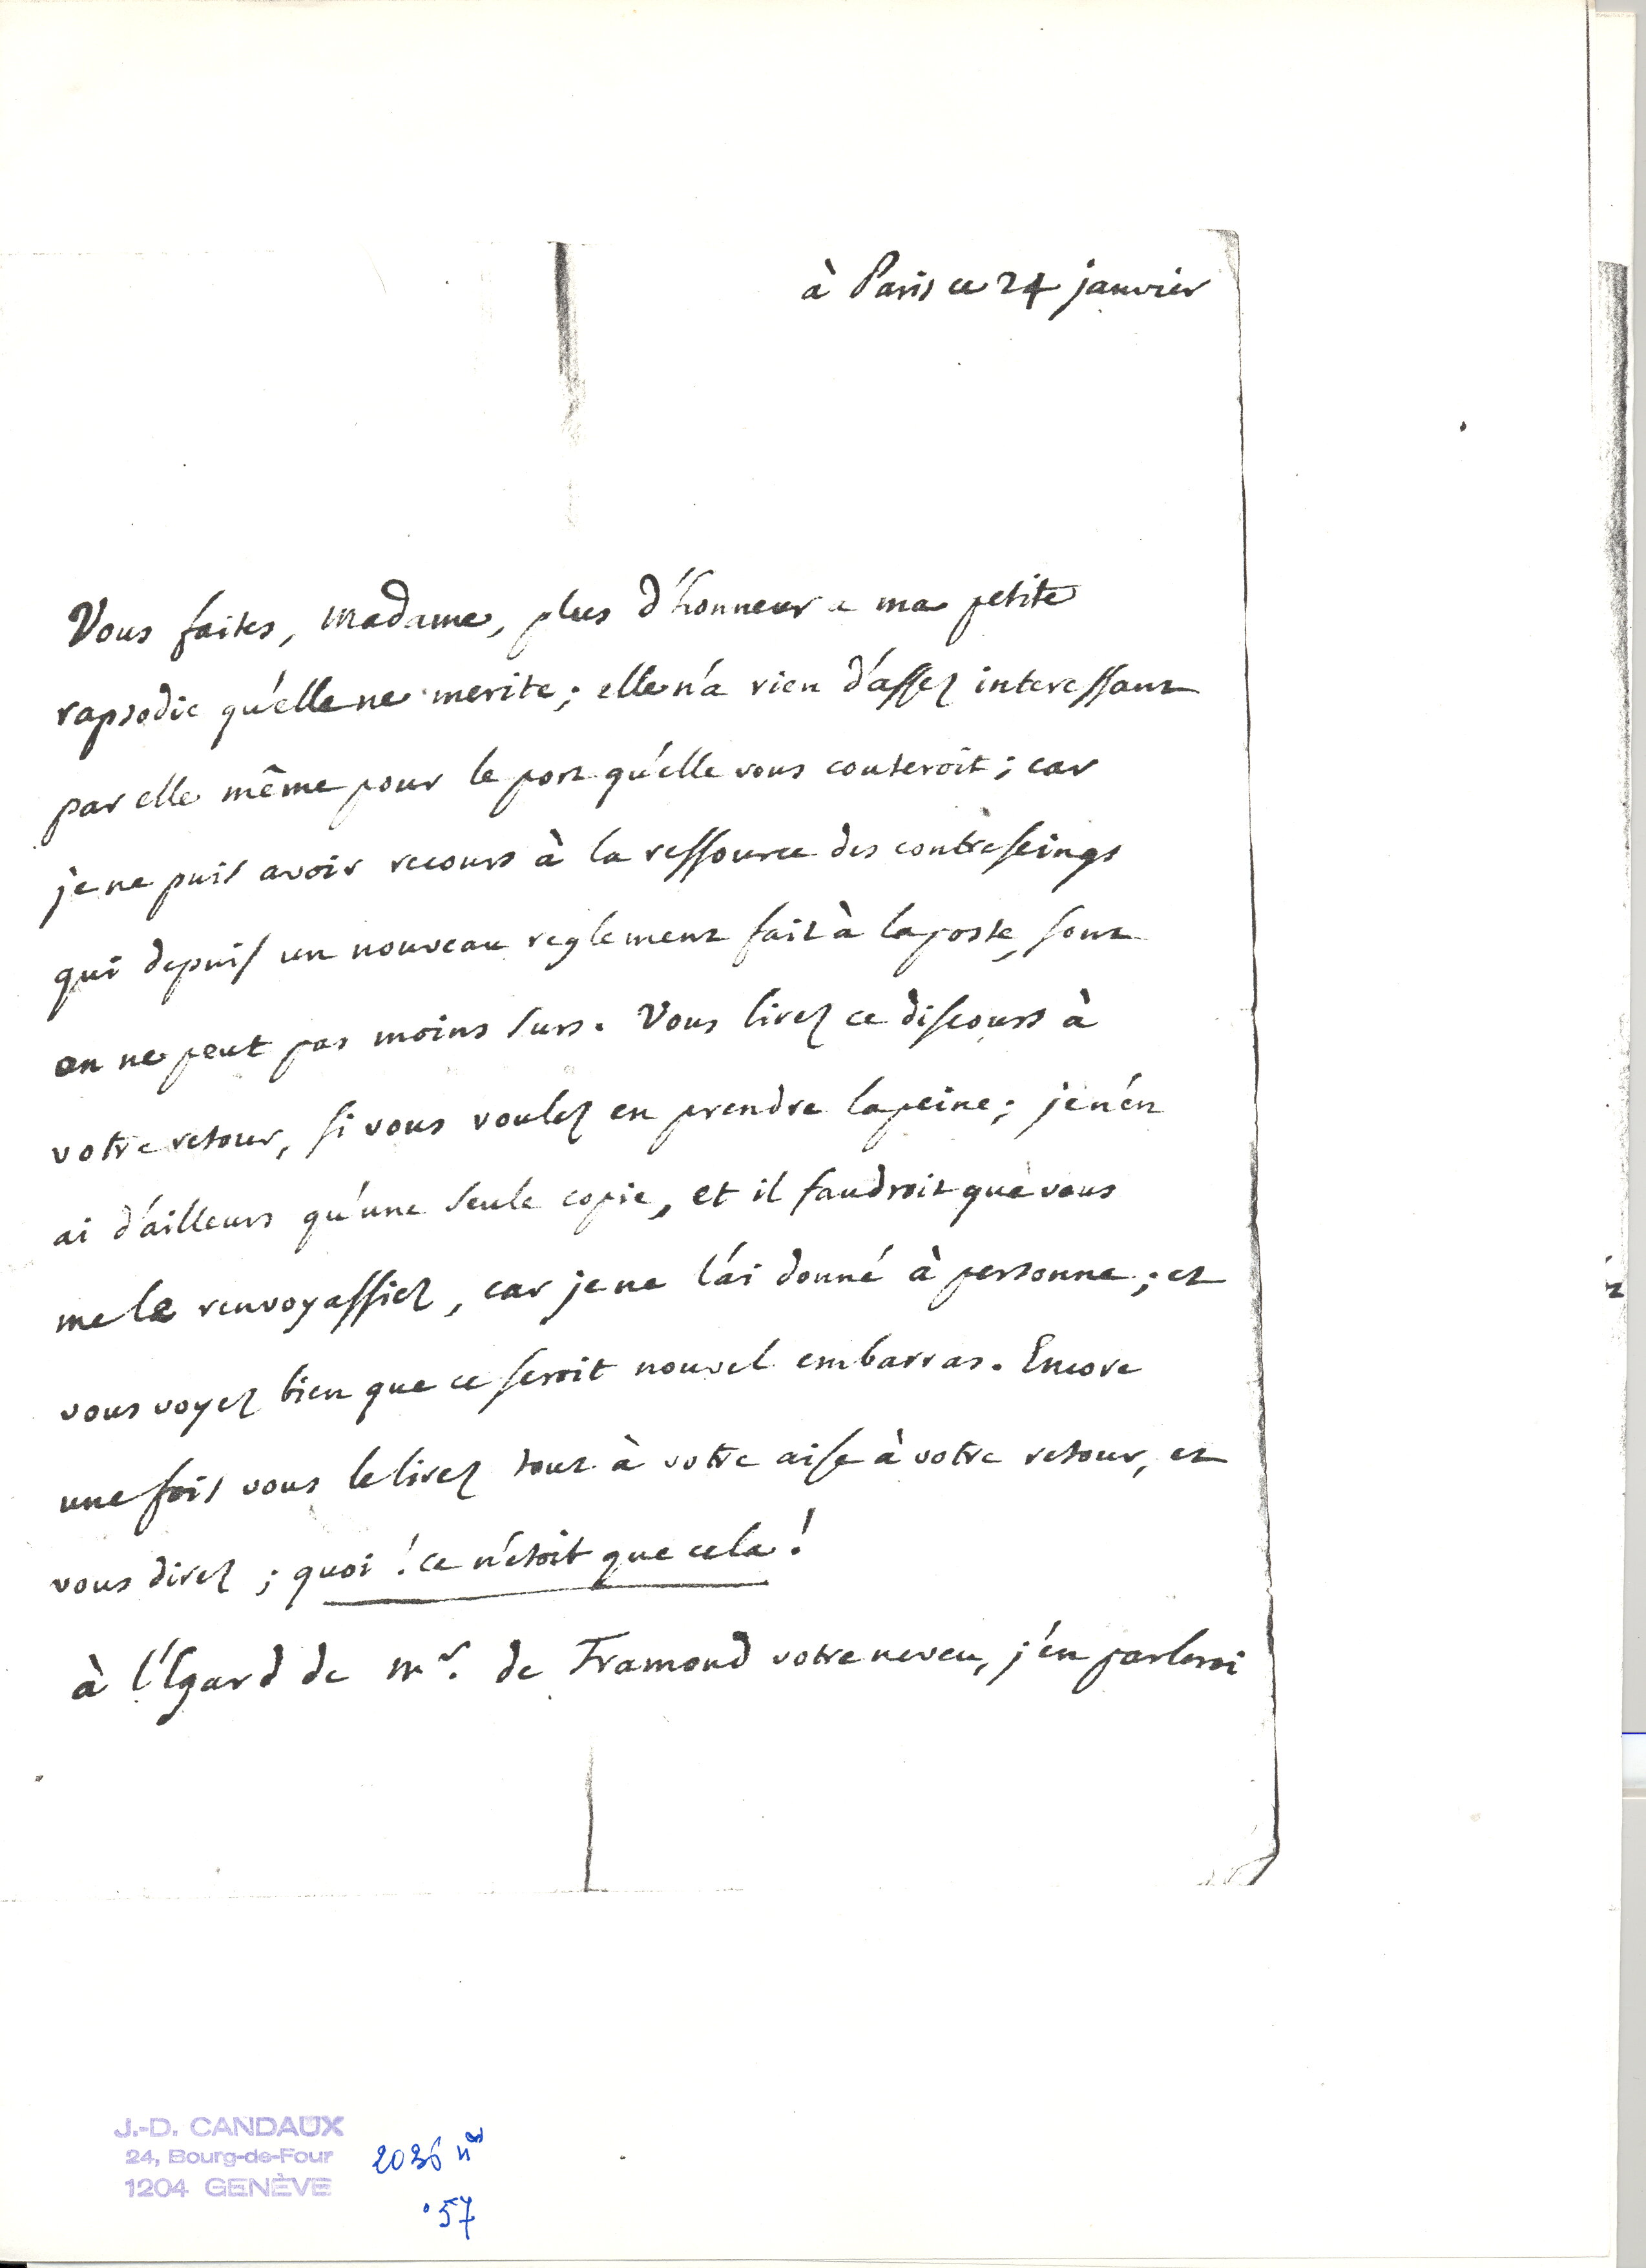 à Paris ce 24 janvier
Vous faites, madame, plus d'honneur a ma petite
rapsodie qu'elle ne merite; elle n'a rien d'assez interessant
par elle même pour le port qu'elle vous couteroit; car
je ne puis avoir recours à la ressource des contreseings
qui depuis un nouveau reglement fait à la poste, sont
on ne peut pas moins surs. Vous lirez ce discours à
votre retour, si vous voulez en prendre la peine; je n'en
ai d'ailleurs qu'une seule copie, et il faudroit que vous
me le renvoyassiez, car je ne l'ai donné à personne; et
vous voyez bien que ce seroit nouvel embarras. Encore
une fois vous le lirez tout à votre aise à votre retour, et
vous direz; quoi! ce n'etoit que cela!
à l'Egard de mr. de Framond votre neveu, j'en parlerai
J.-D. CANDAUX
24, Bourg-de-Four
1204 GENÈVE
2036
57